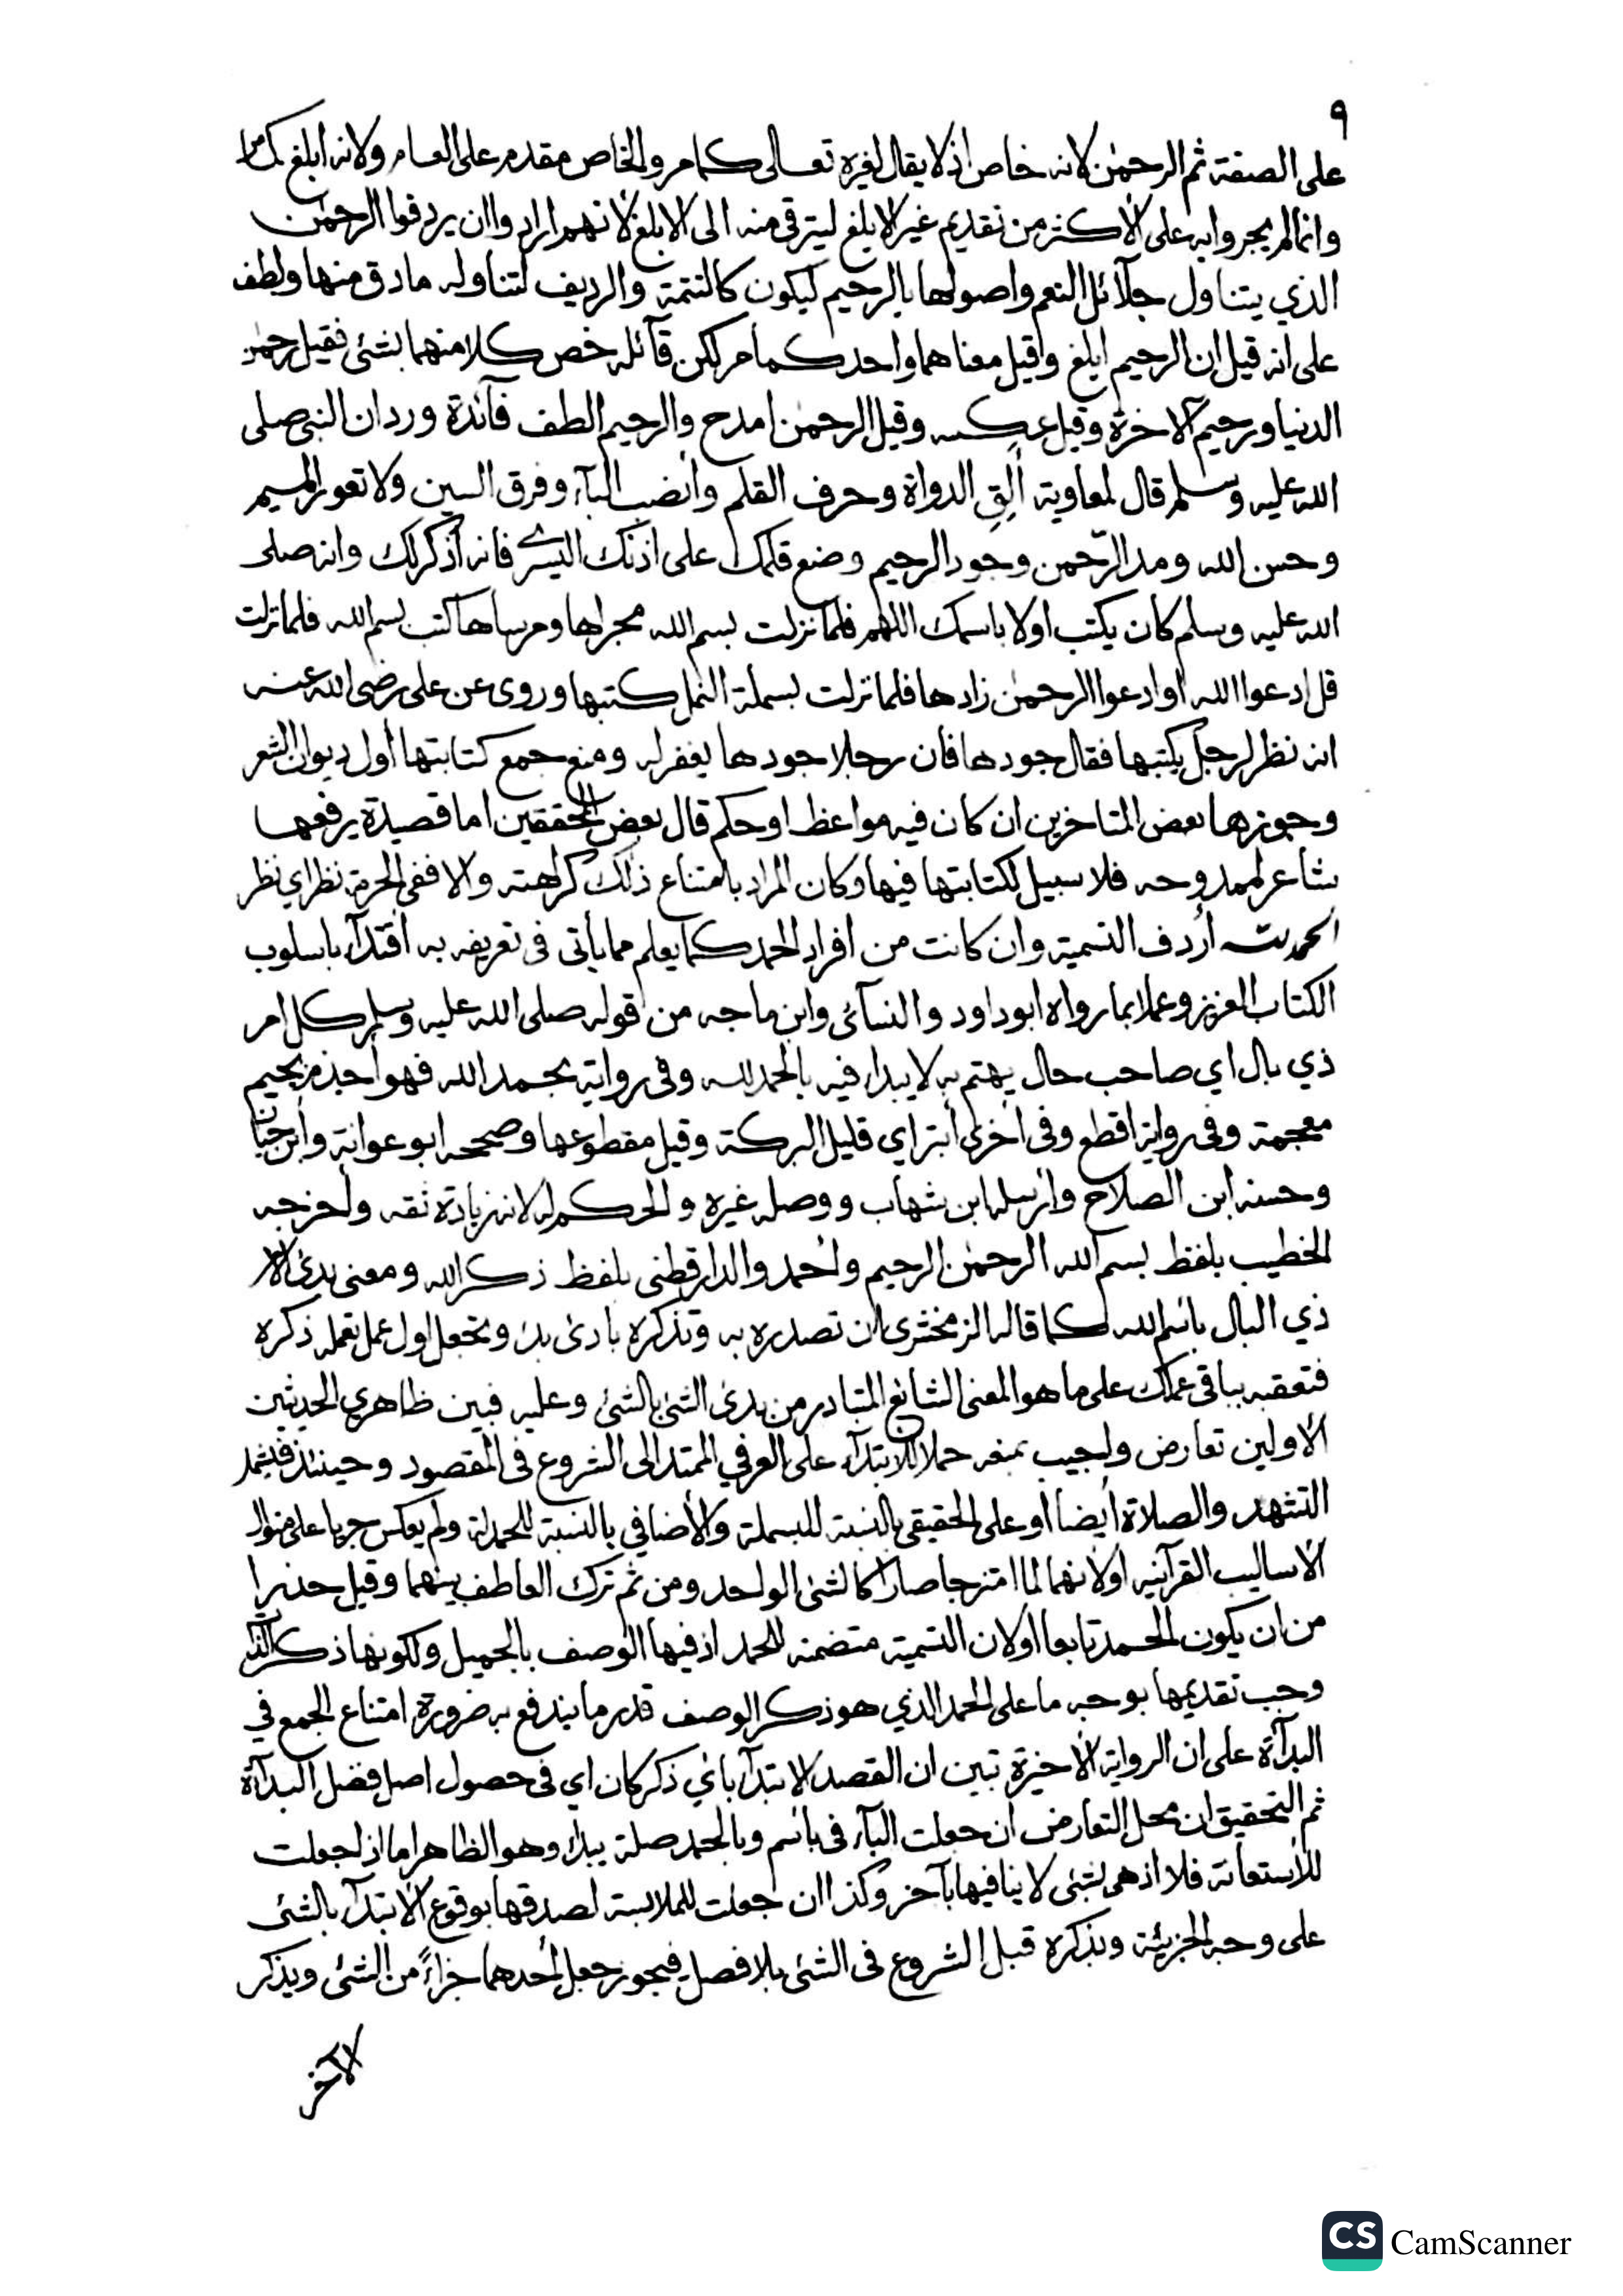 ٩
على الصفة ثم الرحمٰن لانه خاص اذ لا يقال لغيره تعالى كما مر والخاص مقدم على العام ولانه ابلغ كما مر
وانما لم يجروا به على الاكثر من تقديم غير الابلغ ليترقى منه الى الابلغ لانهم ارادوا ان يردفوا الرحمٰن
الذي يتناول جلآئل النعم واصولها بالرحيم ليكون كالتتمة والرديف لتناوله مادق منها ولطف
على انه قيل ان الرحيم ابلغ وقيل معناهما واحد كما مر لكن قآئله خص كلا منهما بشئ فقيل رحمٰن
الدنيا ورحيم الآخرة وقيل عكسه وقيل الرحمٰن امدح والرحيم الطف فآئدة ورد ان النبي صلى
الله عليه وسلم قال لمعاوية ألِقِ الدواة وحرف القلم وانصب البآء وفرق السين ولا تعور الميم
وحسن الله ومد الرّحمن وجود الرحيم وضع قلمك على اذنك اليسرى فانه أذكر لك وانه صلى
الله عليه وسلم كان يكتب اولا باسمك اللهم فلما نزلت بسم الله مجراها ومرساها كتب بسم الله فلما نزلت
قل ادعوا الله او ادعوا الرحمٰن زادها فلما نزلت بسملة النمل كتبها وروى عن على رضى الله عنه
انه نظر لرجل يكتبها فقال جودها فان رجلا جودها يغفر له ومنع جمع كتابتها أول ديوان الشعر
وجوزها بعض المتاخرين ان كان فيه مواعظ او حكم قال بعض المحققين اما قصيدة يرفعها
شاعر لممدوحه فلا سبيل لكتابتها فيها وكان المراد بامتناع ذلك كراهته والا ففى الحرمة نظر اي نظر
الحمد لله أردف التسمية وان كانت من افراد الحمد كما يعلم مما يأتى فى تعريفه به اقتدآء باسلوب
الكتاب العزيز وعملا بما رواه ابو داود والنسآئى وابن ماجه من قوله صلى الله عليه وسلم كل امر
ذي بال اي صاحب حال يهتم به لا يبداء فيه بالحمد لله وفى رواية بحمد الله فهو أجذم بجيم
معجمة وفى رواية اقطع وفى اخرى أبتر اي قليل البركة وقيل مقطوعها وصححه ابو عوانة وابن حبان
وحسنه ابن الصلاح وارسله ابن شهاب ووصله غيره والحكم له لانه زيادة ثقه واخرجه
الخطيب بلفظ بسم الله الرحمٰن الرحيم وأحمد والدارقطنى بلفظ ذكر الله ومعنى بدئ الامر
ذي البال باسم الله كما قاله الزمخشرى ان تصدره به وتذكره بادئ بدء وتجعل اول عمل تعمله ذكره
فتعقبه بباقى عملك على ما هو المعنى الشائع المتبادر من بدئ الشئ بالشئ وعليه فبين ظاهري الحديثين
الاولين تعارض واجيب بمنعه حملا للابتدآء على العرفي الممتد الى الشروع فى المقصود وحينئذ فيشمل
التشهد والصلاة أيضا أو على الحقيقى بالنسبة للبسملة والأضافي بالنسبة للحمدلة ولم يعكس جريا على منوال
الاساليب القرآنيه اولانهما لما امتزجا صارا كالشئ الواحد ومن ثم ترك العاطف بينهما وقيل حذرا
من ان يكون الحمد تابعا اولان التسمية متضمنة للحمد اذ فيها الوصف بالجميل ولكونها ذكر الذات
وجب تقديمها بوجه ما على الحمد الذي هو ذكر الوصف قدر ما يندفع به ضرورة امتناع الجمع في
البدآءة على ان الرواية الأخيرة تبين ان القصد الابتدآء بأي ذكر كان اي فى حصول اصل فضل البدآءة
ثم التحقيق ان محل التعارض ان جعلت البآء فى باسم وبالحمد صلة يبداء وهو الظاهر اما اذا جعلت
للأستعانة فلا اذ هى لشئ لا ينافيها بآخر وكذا ان جعلت للملابسة لصدقها بوقوع الأبتدآء بالشئ
على وجه الجزئية وبذكره قبل الشروع فى الشئ بلا فصل فيجوز جعل أحدهما جزاءً من الشئ ويذكر
الآخر
CS CamScanner